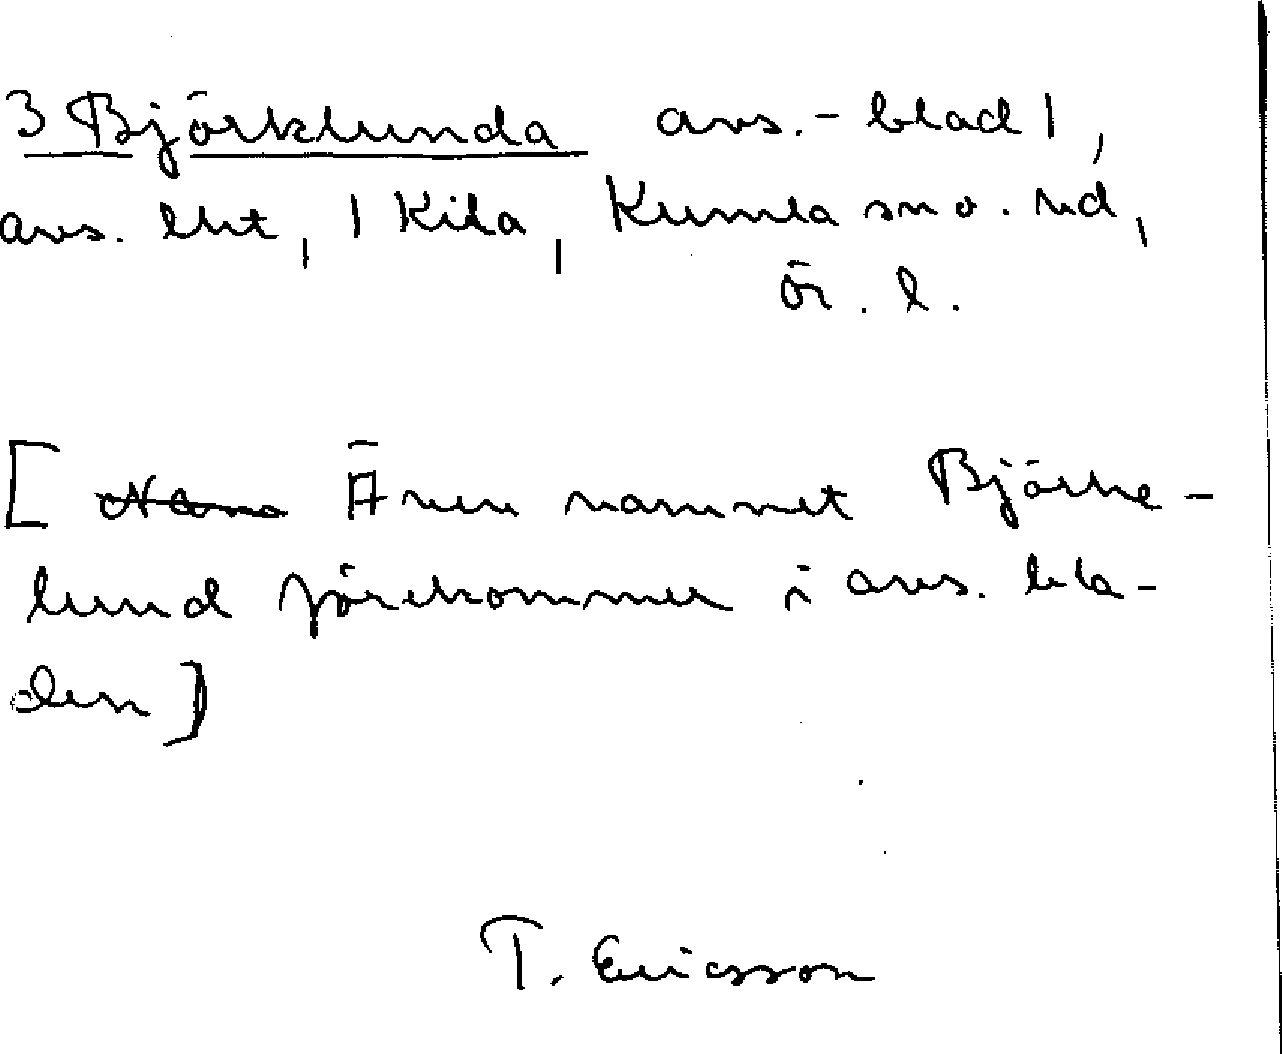 3 Björklunda avs.-blad 1,
avs. lht, 1 Kila, Kumla sn o. hd,
ör. l.
[ Även namnet Björke-
lund förekommer i avs. bla-
den]
T. Ericsson